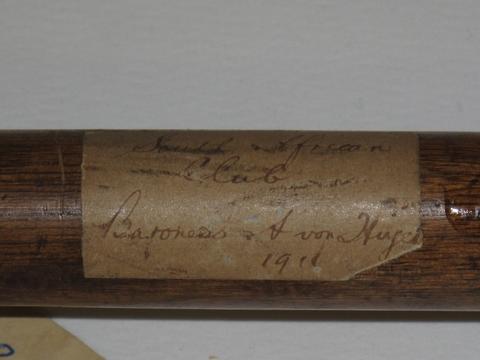 South African
Club
Baroness A von Hügel
1911